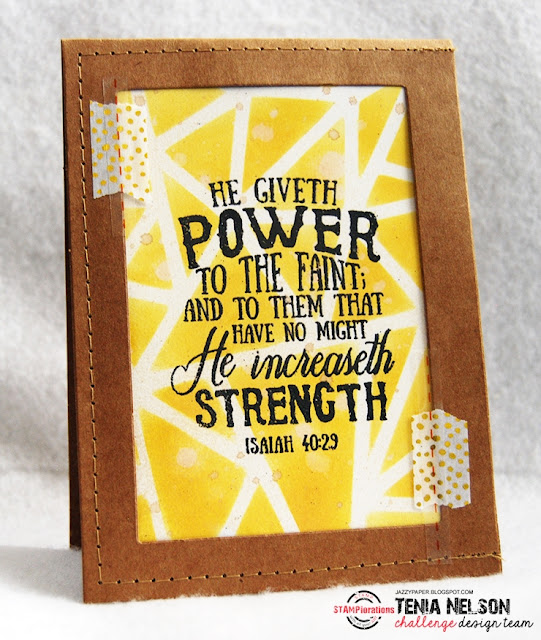 HE GIVETH
POWER
TO THE FAINT;
AND TO THEM THAT
HAVE NO MIGHT
He increaseth
STRENGTH
ISAIAH 40:29
JAZZYPAPER.BLOGSPOT.COM
STAMPlorations
TENIA NELSON
challenge design team